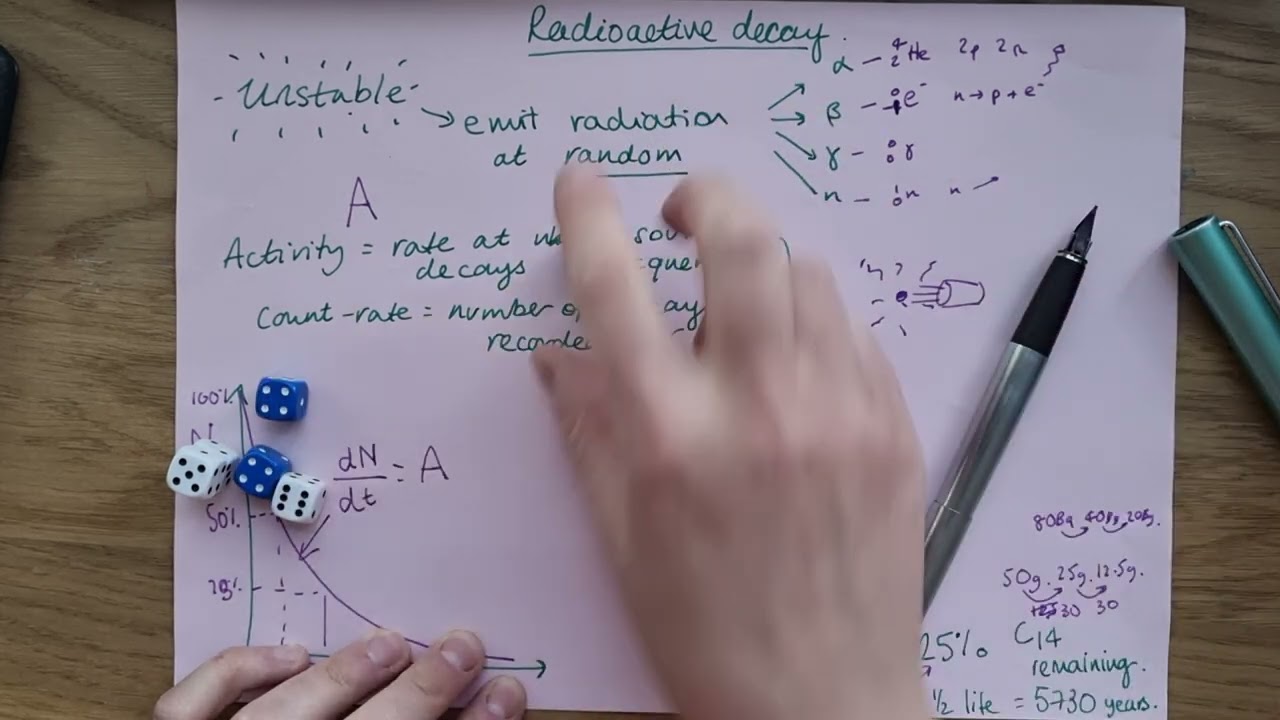 Radioactive decay.
Unstable
emit radiation
at random
α - ⁴₂He 2p 2n
β - e⁻ n→p+e⁻
γ - ⁰₀γ
n - ¹₀n n
A
Activity = rate at sou
decays
Count-rate = number
100%
N
50%
25%
dN/dt = A
80Bq 40Bq 20Bq.
50g. 25g. 12.5g.
30 30
25% C14
remaining.
½ life = 5730 years.